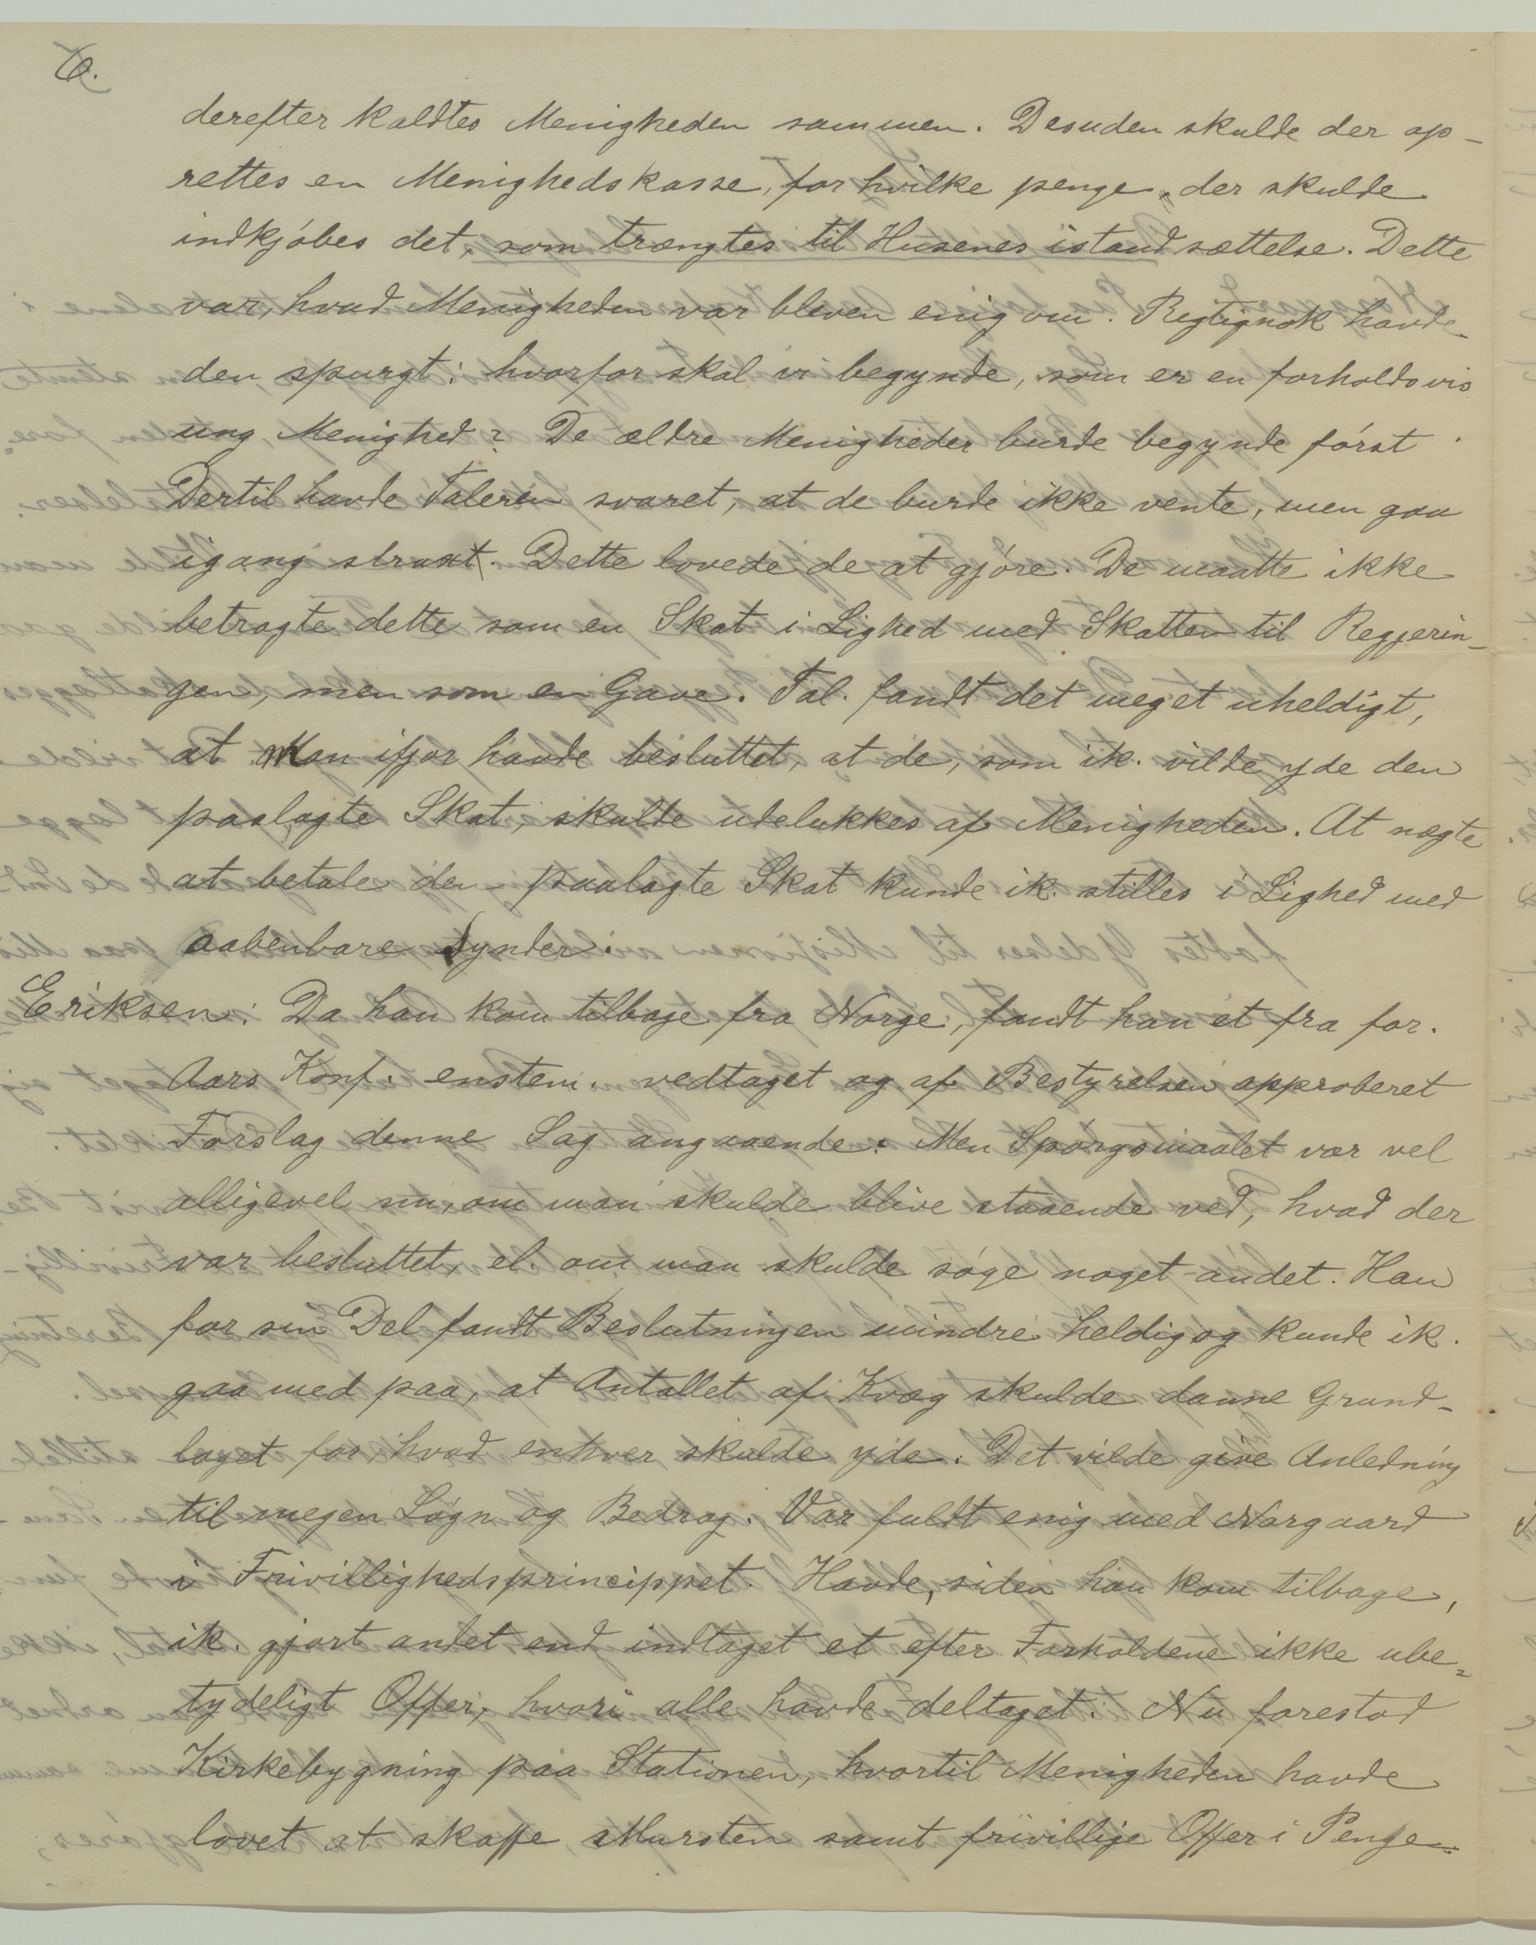 6.
derefter kaldtes Menigheden sammen. Desuden skulde der op-
rettes en Menighedskasse, for hvilke penge der skulde
indkjøbes det, som trængtes til Husenes istandsættelse. Dette
var, hvad Menigheden var bleven enig om. Rigtignok havde
den spurgt: hvorfor skal vi begynde, som er en forholdsvis
ung Menighed? De ældre Menigheder burde begynde først.
Dertil havde Taleren svaret, at de burde ikke vente, men gaa
igang strax. Dette lovede de at gjøre. De maatte ikke
betragte dette som en Skat i Lighed med Skatten til Regjerin-
gen, men som en Gave. Tal. fandt det meget uheldigt,
at Man ifjor havde besluttet, at de, som ik. vilde yde den
paalagte Skat, skulde udelukkes af Menigheden. At nægte
at betale den paalagte Skat kunde ik. stilles i Lighed med
aabenbare Synder.
Eriksen: Da han kom tilbage fra Norge, fandt han et fra for.
Aars Konf. enstem. vedtaget og af Bestyrelsen approberet
Forslag denne Sag angaaende. Men Spørgsmaalet var vel
alligevel nu, om man skulde blive staaende ved, hvad der
var besluttet el. om man skulde søge noget andet. Han
for sin Del fandt Beslutningen mindre heldig og kunde ik.
gaa med paa, at Antallet af Kvæg skulde danne Grund-
laget for hvad enhver skulde yde. Det vilde give Anledning
til megen Løgn og Bedrag. Var fuldt enig med Norgaard
i Frivillighedsprincippet. Havde, siden han kom tilbage,
ik. gjort andet end indtaget et efter Forholdene ikke ube-
tydeligt Offer, hvori alle havde deltaget. Nu forestod
Kirkebygning paa Stationen, hvortil Menigheden havde
lovet at skaffe Mursten samt frivillige Offer i Penge.